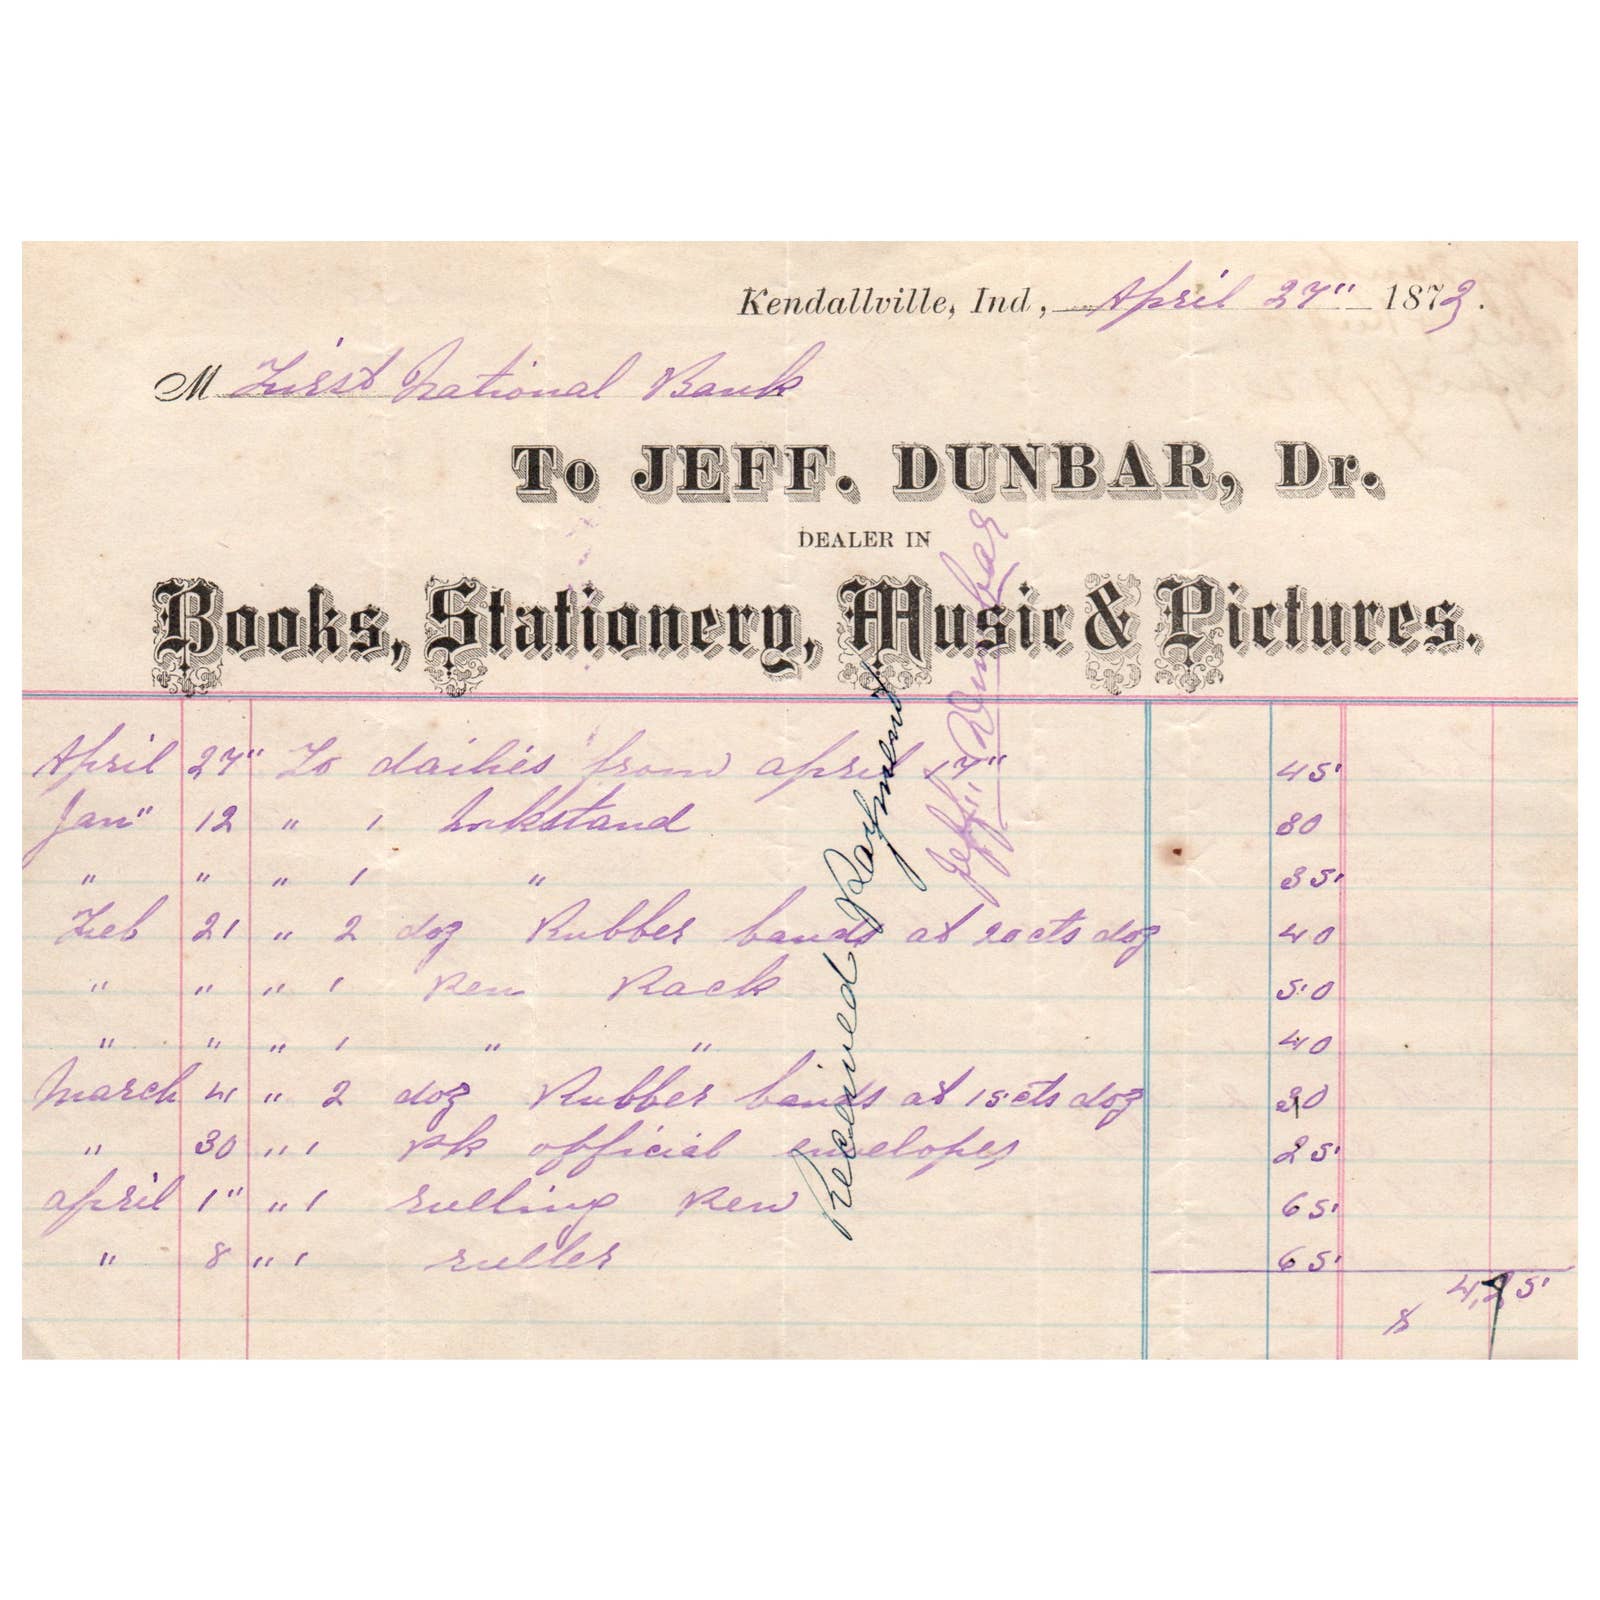 Kendallville, Ind, April 27" 1873.
M First National Bank
To JEFF. DUNBAR, Dr.
DEALER IN
Books, Stationery, Music & Pictures.
April 27" To dailies from april 17" 45
Jan" 12 " 1 Inkstand 80
" " " 1 " 35
Feb 21 " 2 doz Rubber bands at 20 cts doz 40
" " " 1 Pen Rack 50
" " " 1 " " 40
March 4 " 2 doz Rubber bands at 15 cts doz 30
" 30 " 1 pk official envelopes 25
april 1" " 1 rulling Pen 65
" 8 " 1 ruller 65
$ 4,75
Received Payment
Jeff Dunbar